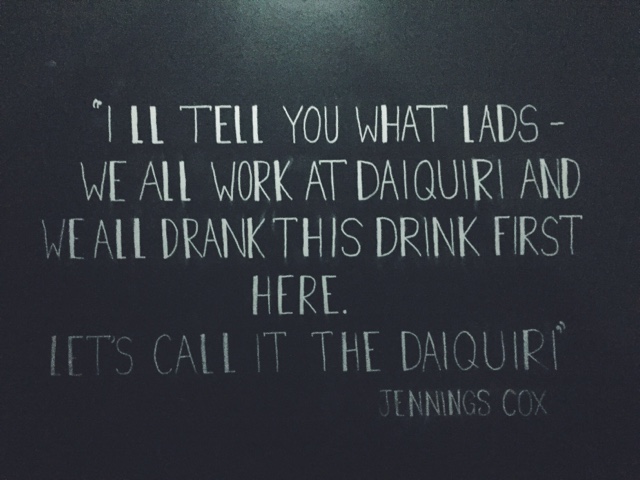 "I LL TELL YOU WHAT LADS -
WE ALL WORK AT DAIQUIRI AND
WE ALL DRANK THIS DRINK FIRST
HERE.
LET'S CALL IT THE DAIQUIRI"
JENNINGS COX